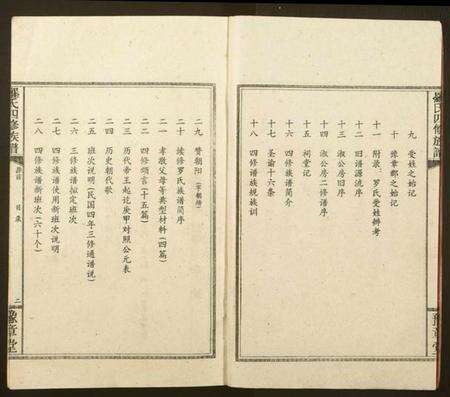 羅氏四修族譜
豫章堂
九 受姓之始记
十 豫章郡之始记
十一 附录、罗氏受姓辨考
十二 旧谱源流序
十三 淑公房旧序
十四 淑公房二修谱序
十五 祠堂记
十六 四修族谱简介
十七 圣谕十六条
十八 四修族规族训
二九 赞朝阳
二十 续修罗氏族谱简序
二一 孝敬父母等典型材料(四篇)
二二 四修颂言(十五篇)
二三 历代帝王纪讫庚甲对照公元表
二四 历史朝代歌
二五 班次说明(民国四年三修通谱说)
二六 三修族谱拟定班次
二七 四修族谱使用新班次说明
二八 四修族谱新班次(六十个)
羅氏四修族譜
卷首 目录
二
豫章堂